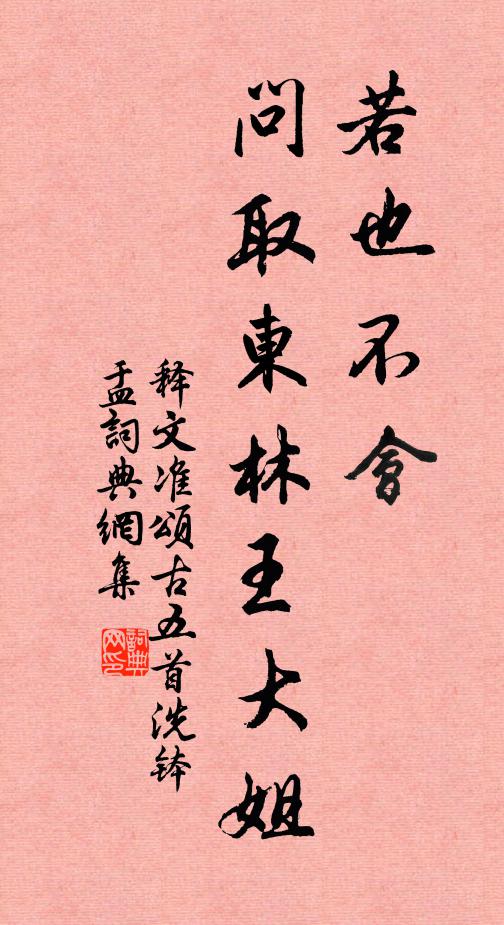 若也不會
問取東林王大姐
释文准頌古五首洗钵
盂詞典網集
詞典网印